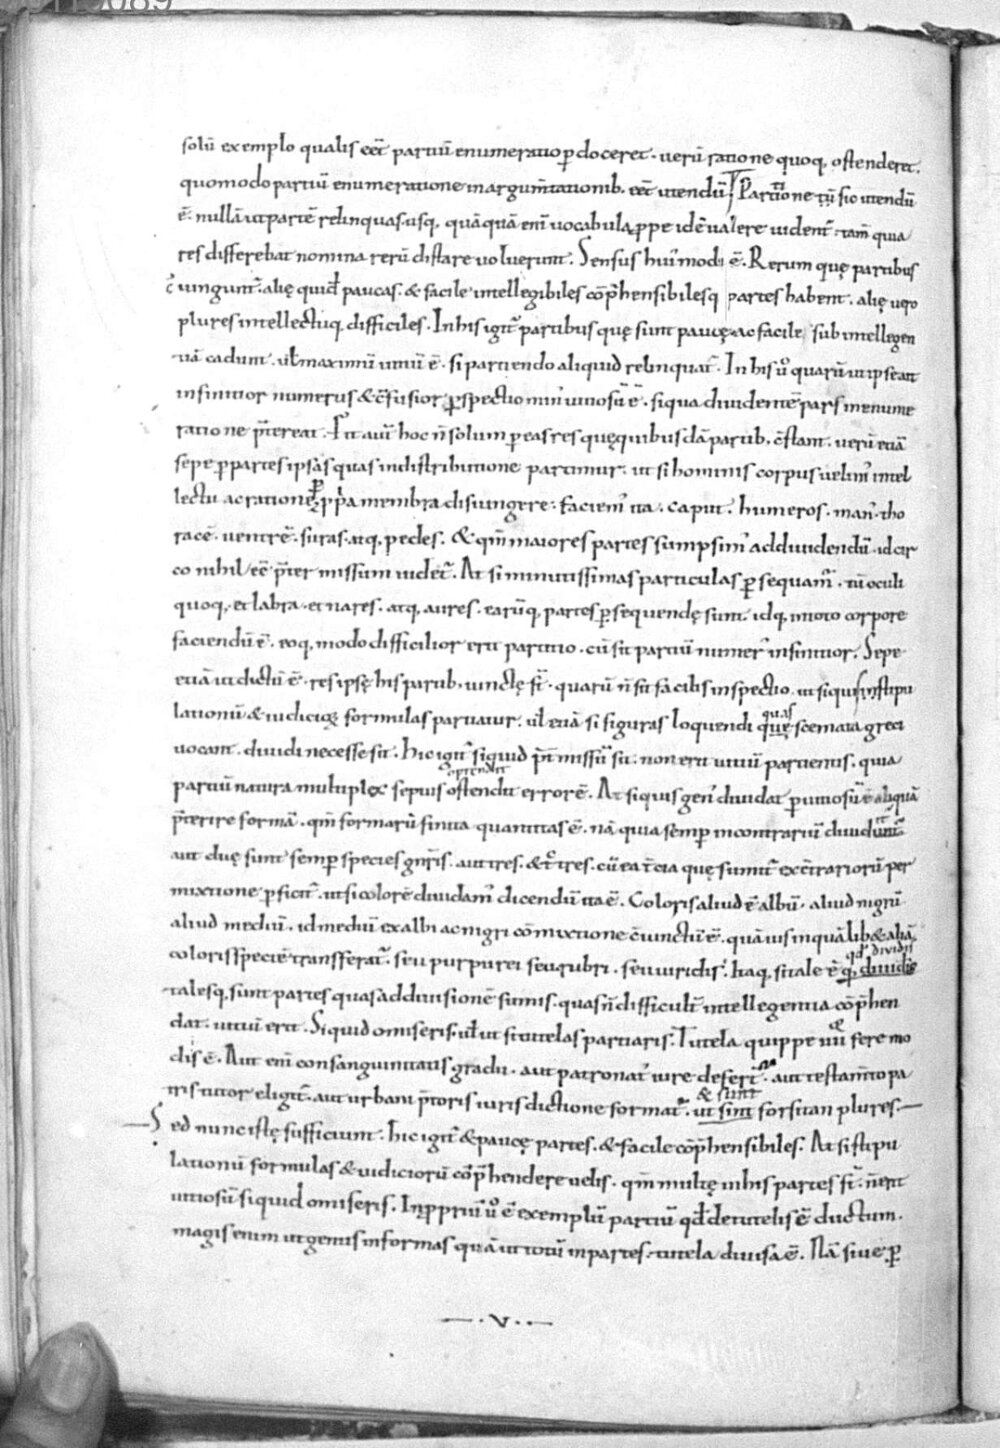 119089
solū exemplo qualis eēt partiū enumeratio ꝑdoceret · verū ratione quoq; ostenderet.
quomodo partiū enumeratione in argum̄tationib; eēt utendū. Partitione tū sic utendū
ē· nullā ut partē relinquas· usq; quāquā eni uocabula ꝓpe idē ualere uident̄ tam̄ quia
res differebat nomina rerū distare uoluerunt. Sensus hui' modi ē. Rerum quę partibus
iungunt̄· alię quidē paucas · & facile intellegibiles cōp̄hensibilesq; partes habent · alię uero
plures intellectuq; difficiles. In his igit̄ partibus quę sunt paucę ac facile sub intellegen
tiā cadunt · uł maximū uitiū ē · si partiendo aliquid relinquat̄. In his u° quarū ut ipse ait
infinitior numerus & c̄fusior ꝑspectio min' uitiosū ē · si qua diuidentē pars in enume
ratione p̄tereat. Fit aut̄ hoc n̄ solum ꝑ eas res quę quibusdā partib; c̄stant · uerū etiā
sepe ꝑ partes ipsas quas in distributione partimur · ut si hominis corpus uelim' intel
lectu ac ratione ꝓp̄a membra disiungere · faciem' ita · caput · humeros · man' · tho
racē · uentrē · suras · atq; pedes. & qm̄ maiores partes sumpsim' ad diuidendū · idcir
co nihil eē p̄ter missum uidet̄. At si minutissimas particulas ꝑsequam̄ · tū oculi
quoq; et labra · et nares · atq; aures · earūq; partes ꝑsequendę sunt · idq; in toto corpore
faciendū ē · eoq; modo difficilior erit partitio · cū sit partiū numer' infinitior. Sepe
etiā ut dictū ē · res ipsę his partib; uinctę st̄ · quarū n̄ sit facilis inspectio · ut siquis instipu
lationū & iudicioꝝ formulas partiatur · uł etiā si figuras loquendi quę scemata greci
quas
uocant · diuidi necesse sit. hic igit̄ siquid p̄t missū sit · non erit uitiū partientis · quia
partiū natura multiplex sepius ostendit errorē. At siquis gen' diuidat ꝑuitiosū ē aliquā
p̄terire formā · qm̄ formarū finita quantitas ē · nā quia semꝑ in contrariū diuidunt̄
aut duę sunt semꝑ species gn̄ris · aut tres · cū ea t̄cia quę sumit̄ ex c̄trariorū per
mixtione ꝑficit̄ · ut si colorē diuidam' dicendū ita ē. Coloris aliud ē albū · aliud nigrū
aliud mediū · id mediū ex albi ac nigri cōmixtione c̄iunctū ē · quāuis in quālib& aliā
coloris speciē transferat̄ · seu purpurei seu rubri · seu uiridis. Itaq; si tale ē q; diuidis
qd' diuidis
talesq; sunt partes quas ad diuisionē sumis · quas n̄ difficult̄ intellegentia cōp̄hen
dat · uitiū erit. Siquid omiseris · uł ut si tutelas partiaris. Tutela quippe fere mo
dis ē. Aut eni consanguinitatis gradu · aut patronat' iure desert̄ · aut testam̄to pa
tris tutor eligit̄ · aut urbani p̄toris iuris dictione format̄ · ut sint forsitan plures.
& sunt
Sed nunc istę sufficiunt. hic igit̄ & paucę partes · & facile cōp̄hensibiles. At si stipu
lationū formulas & iudiciorū cōp̄hendere uelis · qm̄ multę in his partes st̄ · n̄ erit
uitiosū siquid omiseris. Inꝓpriū u° ē exemplū partiū qđ de tutelis ē ductum.
magis enim ut genus in formas quā ut totū in partes tutela diuisa ē. Nā siue ꝑ
V